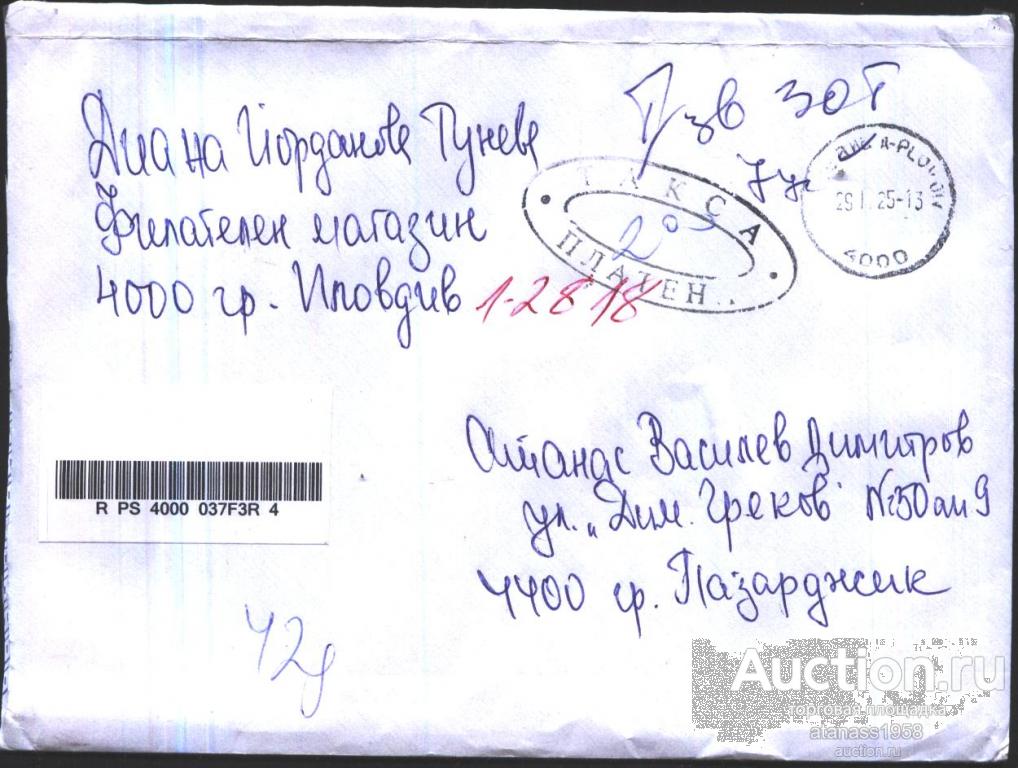 Диана Йорданова Гунева
Филателен магазин
4000 гр. Пловдив 1-2818
зв
ТАКСА
ПЛАТЕН
29 25-13
4000
R PS 4000 037F3R 4
Атанас Василев Димитров
ул. „Дим. Греков" №50 ап 9
4400 гр. Пазарджик
42g
Auction.ru
торговая площадка
atanass1958
auction.ru